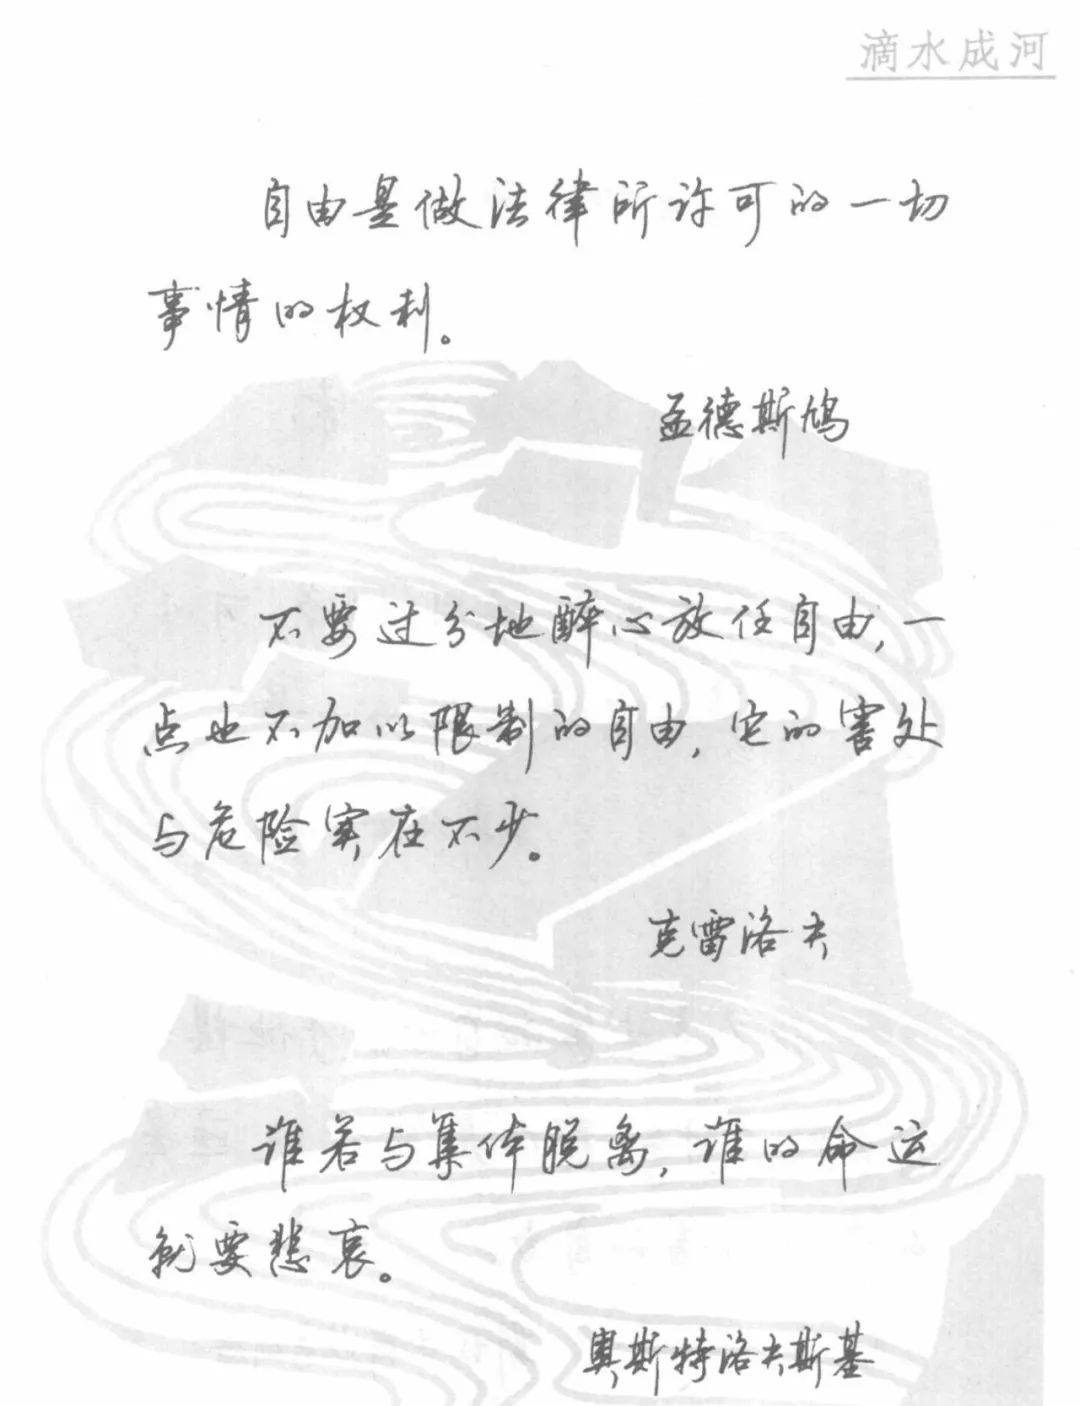 滴水成河
自由是做法律所许可的一切
事情的权利。
孟德斯鸠
不要过分地醉心放任自由,一
点也不加以限制的自由,它的害处
与危险实在不少。
克雷洛夫
谁若与集体脱离,谁的命运
就要悲哀。
奥斯特洛夫斯基